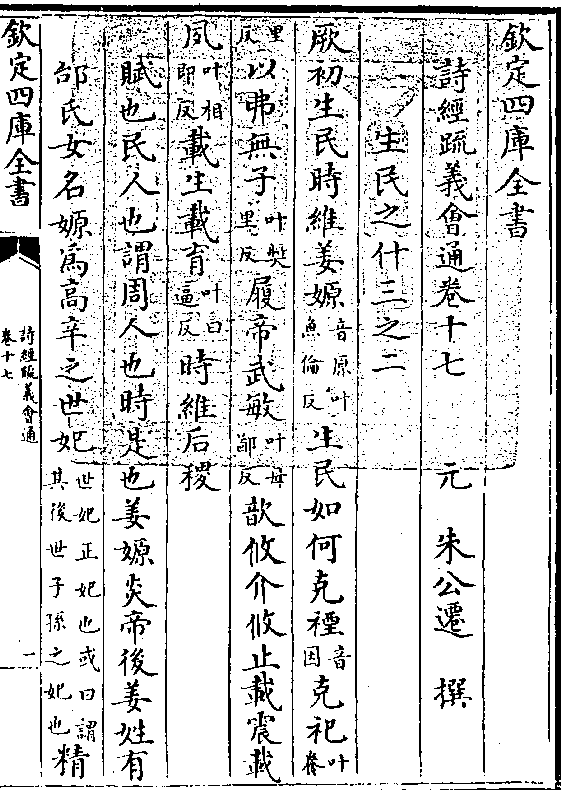 欽定四庫全書
詩經疏義會通卷十七 元 朱公遷 撰
生民之什三之二
厥初生民時維姜嫄音原叶魚倫反生民如何克禋音因克祀叶養
里反以弗無子叶奬里反履帝武敏叶母鄙反歆攸介攸止載震載
夙叶相即反載生載育叶曰逼反時維后稷
賦也民人也謂周人也時是也姜嫄炎帝後姜姓有
邰氏女名嫄為高辛之世妃世妃正妃也或曰謂其後世子孫之妃也精
欽定四庫全書
詩經疏義會通
卷十七
一